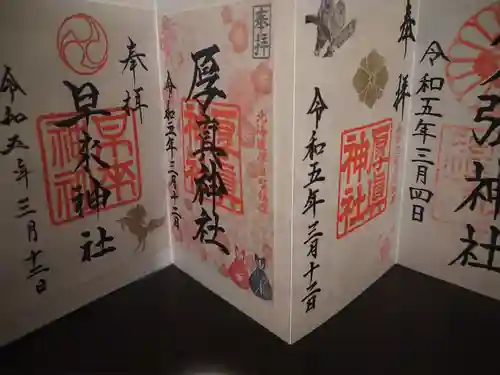 神社
令和五年三月四日
奉拝
厚真
神社
令和五年三月十二日
奉拝
厚真神社
厚真
神社
令和五年三月十二日
奉拝
早来神社
早来
神社
令和五年三月十二日